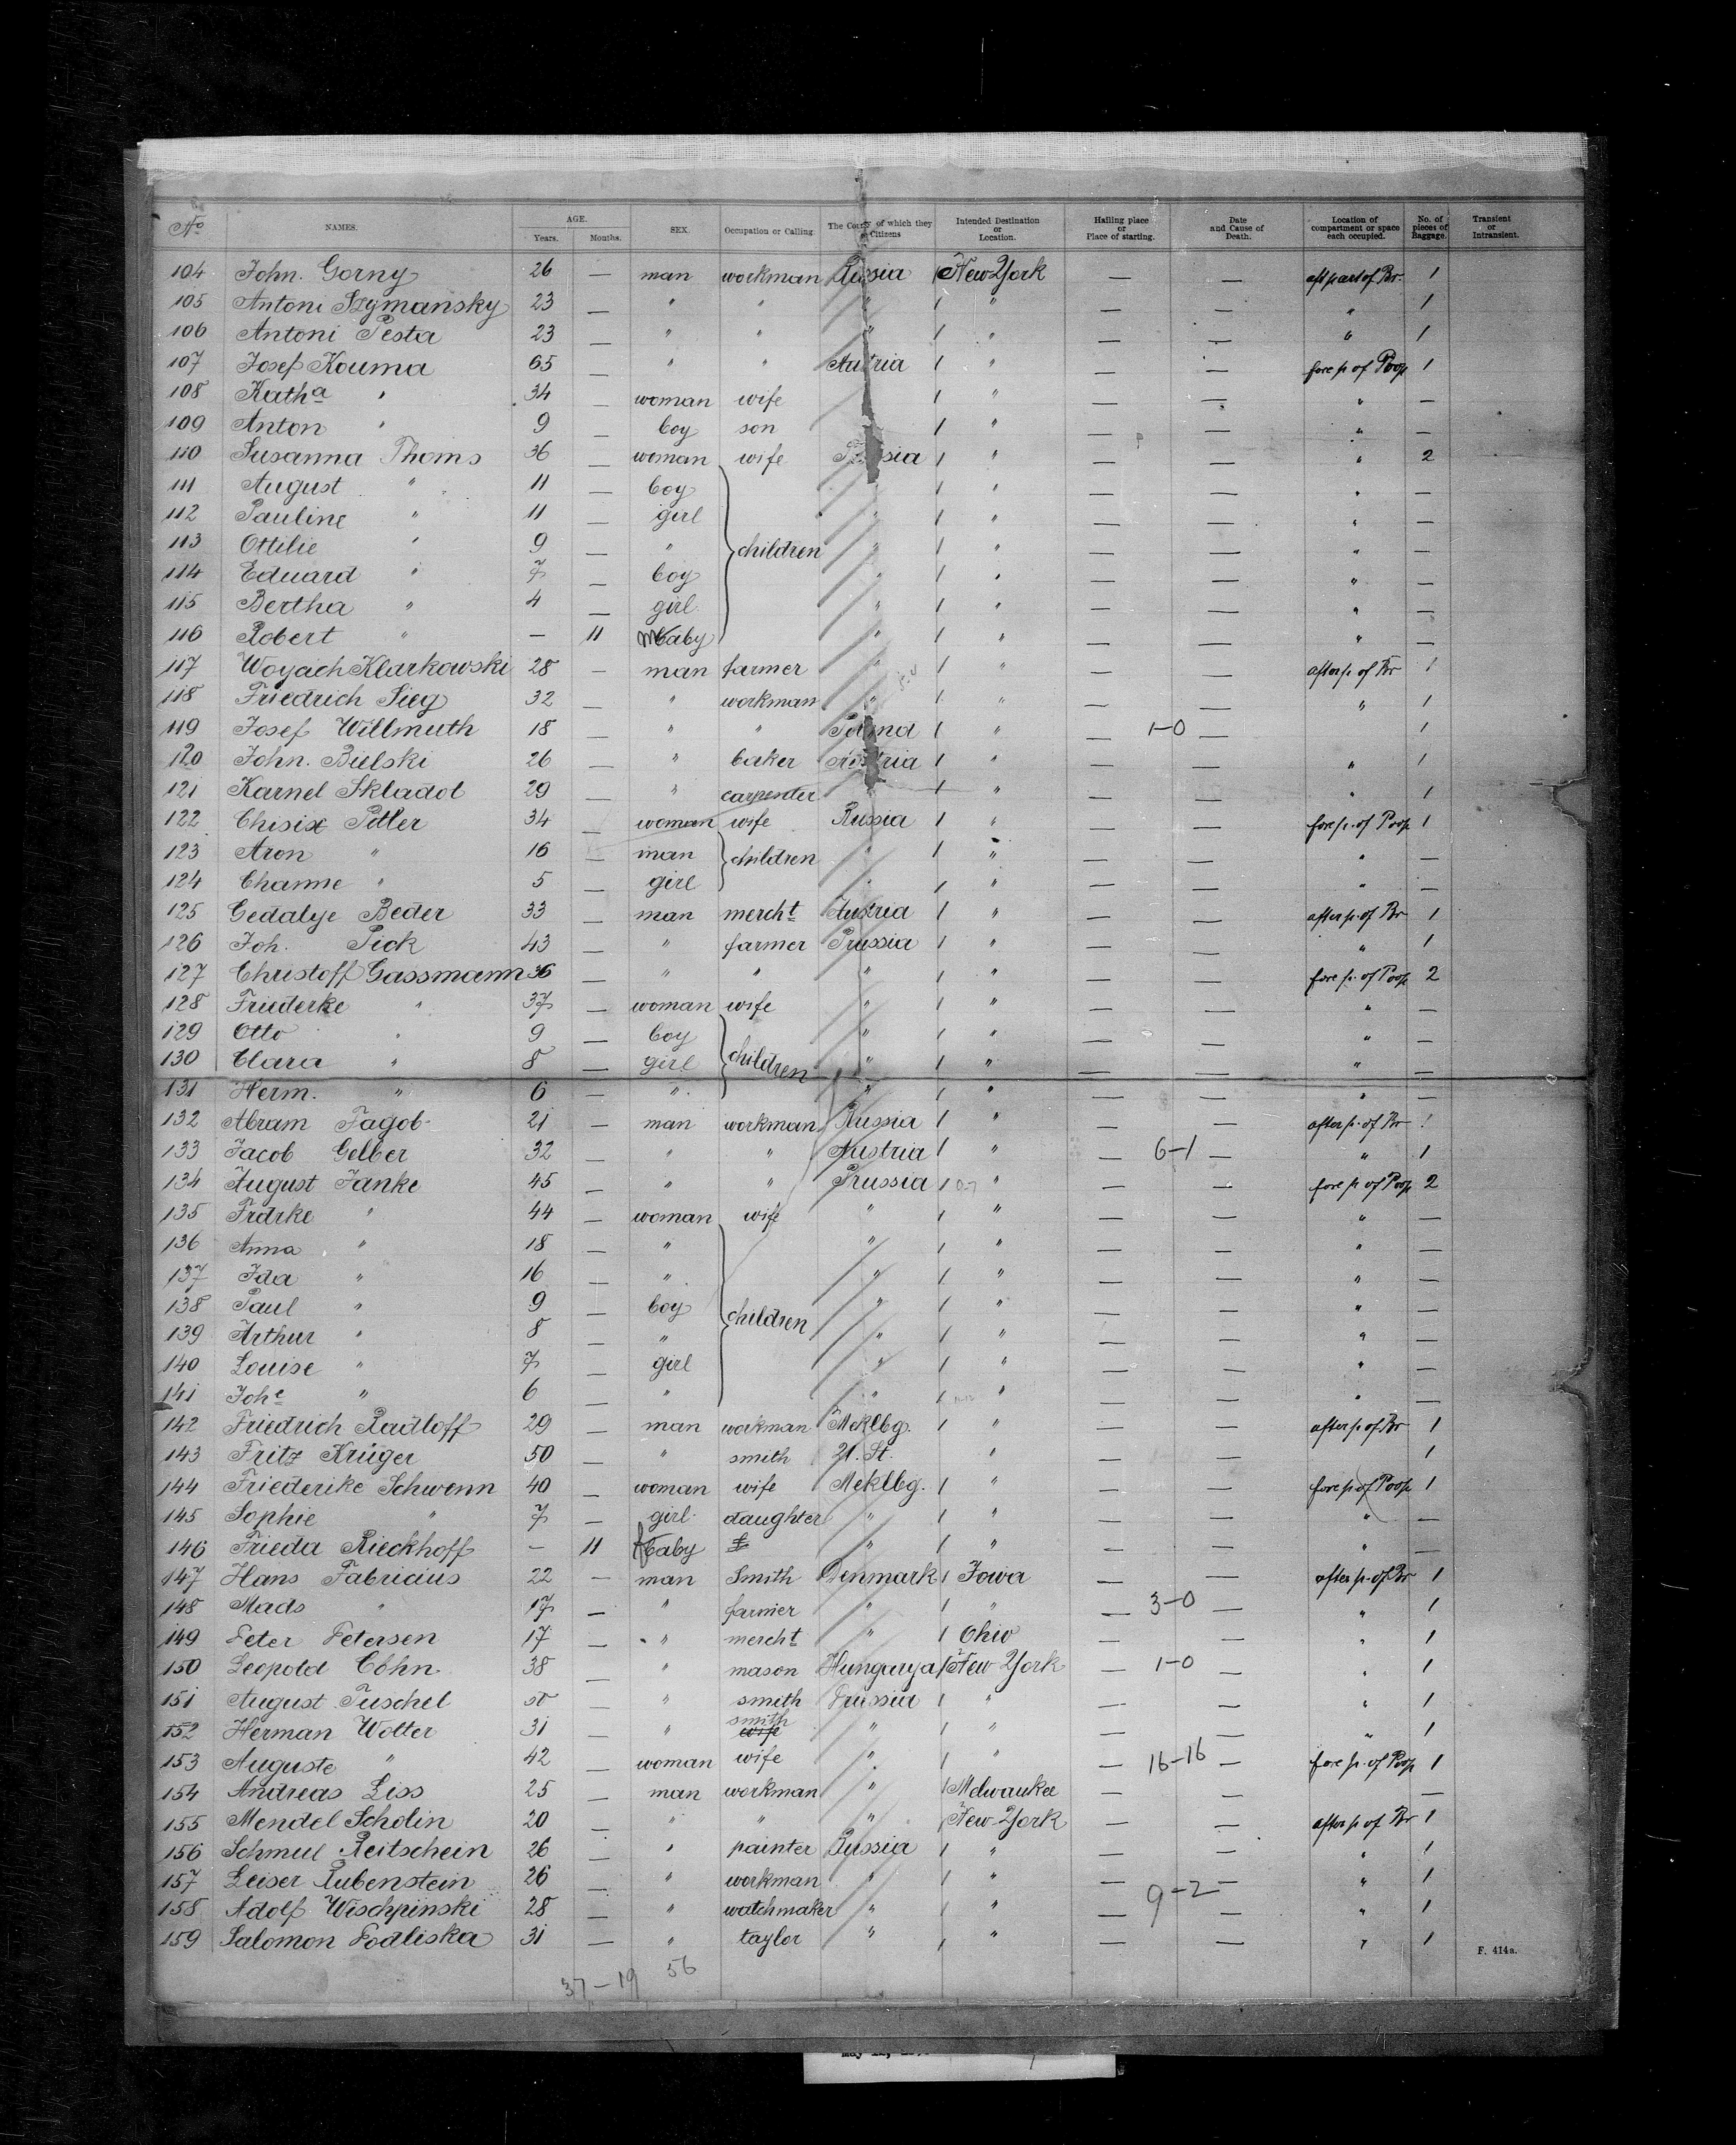 No NAMES. AGE. Years. Months. SEX. Occupation or Calling. The Country of which they Citizens Intended Destination or Location. Hailing place or Place of starting. Date and Cause of Death. Location of compartment or space each occupied. No. of pieces of Baggage. Transient or Intransient.
104 John. Gorny 26 — man workman Russia / New York — — aft part of Br. 1
105 Antoni Szymansky 23 — " " " / " — — " 1
106 Antoni Pesta 23 — " " " / " — — " 1
107 Josef Kouma 65 — " " Austria / " — — fore p. of Poop 1
108 Katha " 34 — woman wife / " — — " —
109 Anton " 9 — boy son / " — — " —
110 Susanna Thoms 36 — woman wife sia / " — — " 2
111 August " 11 — boy / " — — " —
112 Pauline " 11 — girl " / " — — " —
113 Ottilie " 9 — " children " / " — — " —
114 Eduard " 7 — boy " / " — — " —
115 Bertha " 4 — girl " / " — — " —
116 Robert " — 11 m baby " / " — — " —
117 Woyach Klarkowski 28 — man farmer " / " — — after p. of Br 1
118 Friedrich Sieg 32 — " workman " / " — — " 1
119 Josef Willmuth 18 — " " Poland / " — 1-0 — 1
120 John. Bielski 26 — " baker Austria / " — — " 1
121 Karnel Skladol 29 — " carpenter / " — — " 1
122 Chisix Petler 34 — woman wife Russia / " — — fore p. of Poop 1
123 Aron " 16 — man children " / " — — " —
124 Channe " 5 — girl " / " — — " —
125 Gedalye Beder 33 — man mercht Austria / " — — after p. of Br 1
126 Joh. Pick 43 — " farmer Prussia / " — — " 1
127 Christoff Gassmann 36 — " " " / " — — fore p. of Poop 2
128 Friederke " 37 — woman wife " / " — — " —
129 Otto " 9 — boy " / " — — " —
130 Clara " 8 — girl children " / " — — " —
131 Herm. " 6 — " " / " — — " —
132 Abram Jagob 21 — man workman Russia / " — — after p. of Br 1
133 Jacob Gelber 32 — " " Austria / " — 6-1 — " 1
134 August Janke 45 — " " Prussia / " — — fore p. of Poop 2
135 Frdrke " 44 — woman wife " / " — — " —
136 Anna " 18 — " " / " — — " —
137 Ida " 16 — " " / " — — " —
138 Paul " 9 — boy children " / " — — " —
139 Arthur " 8 — " " / " — — " —
140 Louise " 7 — girl " / " — — " —
141 Johe " 6 — " " / " — — " —
142 Friedrich Radloff 29 — man workman Meklbg. / " — — after p. of Br 1
143 Fritz Krüger 50 — " smith St. " — — 1
144 Friederike Schwenn 40 — woman wife Meklbg. / " — — fore p. of Poop 1
145 Sophie " 7 — girl daughter " / " — — " —
146 Frieda Rieckhoff — 11 f baby " / " — — " —
147 Hans Fabricius 22 — man Smith Denmark / Iowa — — after p. of Br 1
148 Mads " 17 — " farmer " / " — 3-0 — " 1
149 Peter Petersen 17 — " mercht " / Ohio — — " 1
150 Leopold Cohn 38 — " mason Hungarya / New York — 1-0 — " 1
151 August Tuschel — " smith Prussia / " — — " 1
152 Herman Wolter 31 — " smith wife " / " — — " 1
153 Auguste " 42 — woman wife " / " — 16-16 — fore p. of Poop 1
154 Andreas Liss 25 — man workman " / Melwaukee — — —
155 Mendel Scholin 20 — " " " / New York — — after p. of Br 1
156 Schmul Reitschein 26 — " painter Russia / " — — " 1
157 Leiser Rubenstein 26 — " workman " / " — — " 1
158 Adolf Wischpinski 28 — " watchmaker " / " — 9-2 — " 1
159 Salomon Podliska 31 — " taylor " / " — — " 1
F. 414a.
37-19 56